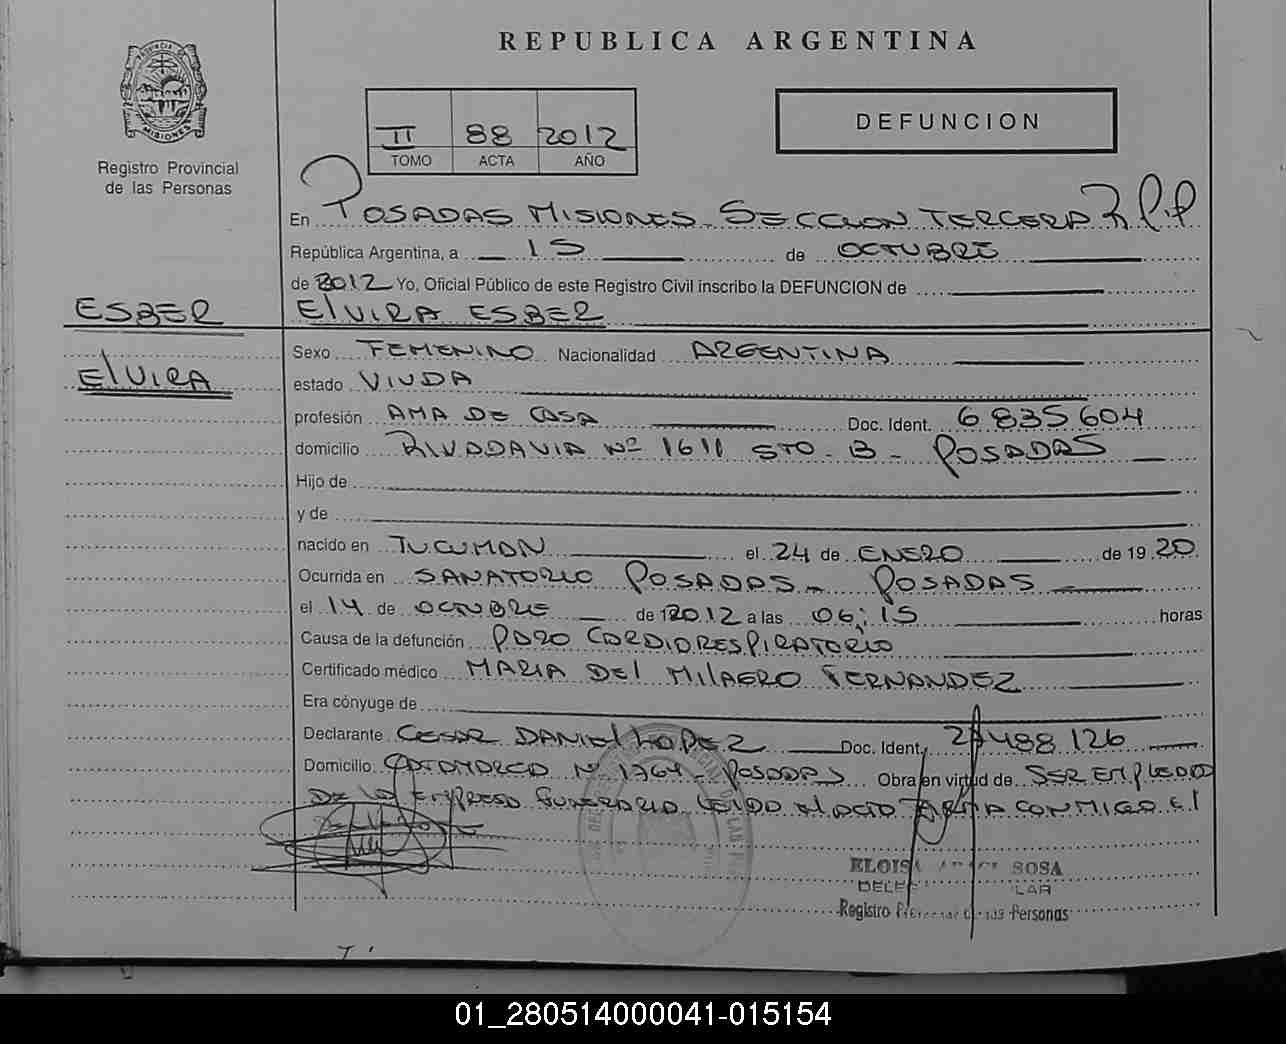 REPUBLICA ARGENTINA
PROVINCIA DE
MISIONES
Registro Provincial
de las Personas
II 88 2012
TOMO ACTA AÑO
DEFUNCION
En POSADAS MISIONES - SECCION TERCERA R.P.P.
República Argentina, a 15 de OCTUBRE
de 2012 Yo, Oficial Público de este Registro Civil inscribo la DEFUNCION de
ESBER
ElVIRA ESBER
ElVIRA
Sexo FEMENINO Nacionalidad ARGENTINA
estado VIUDA
profesión AMA DE CASA Doc. Ident. 6 835 604
domicilio RIVADAVIA Nº 1611 5TO - B - POSADAS
Hijo de
y de
nacido en TUCUMAN el 24 de ENERO de 19 20
Ocurrida en SANATORIO POSADAS - POSADAS
el 14 de OCTUBRE de 2012 a las 06:15 horas
Causa de la defunción PARO CARDIORESPIRATORIO
Certificado médico MARIA DEl MIlAGRO FERNANDEZ
Era cónyuge de
Declarante CESAR DANIEl LOPEZ Doc. Ident. 488 126
Domicilio CATAMARCA Nº 1764 - POSADAS Obra en virtud de SER EMPLEADO
DE LA EMPRESA FUNERARIA LEIDA El ACTA FIRMA CONMIGO El
ELOISA SOSA
Registro Provincial de las Personas
01_280514000041-015154